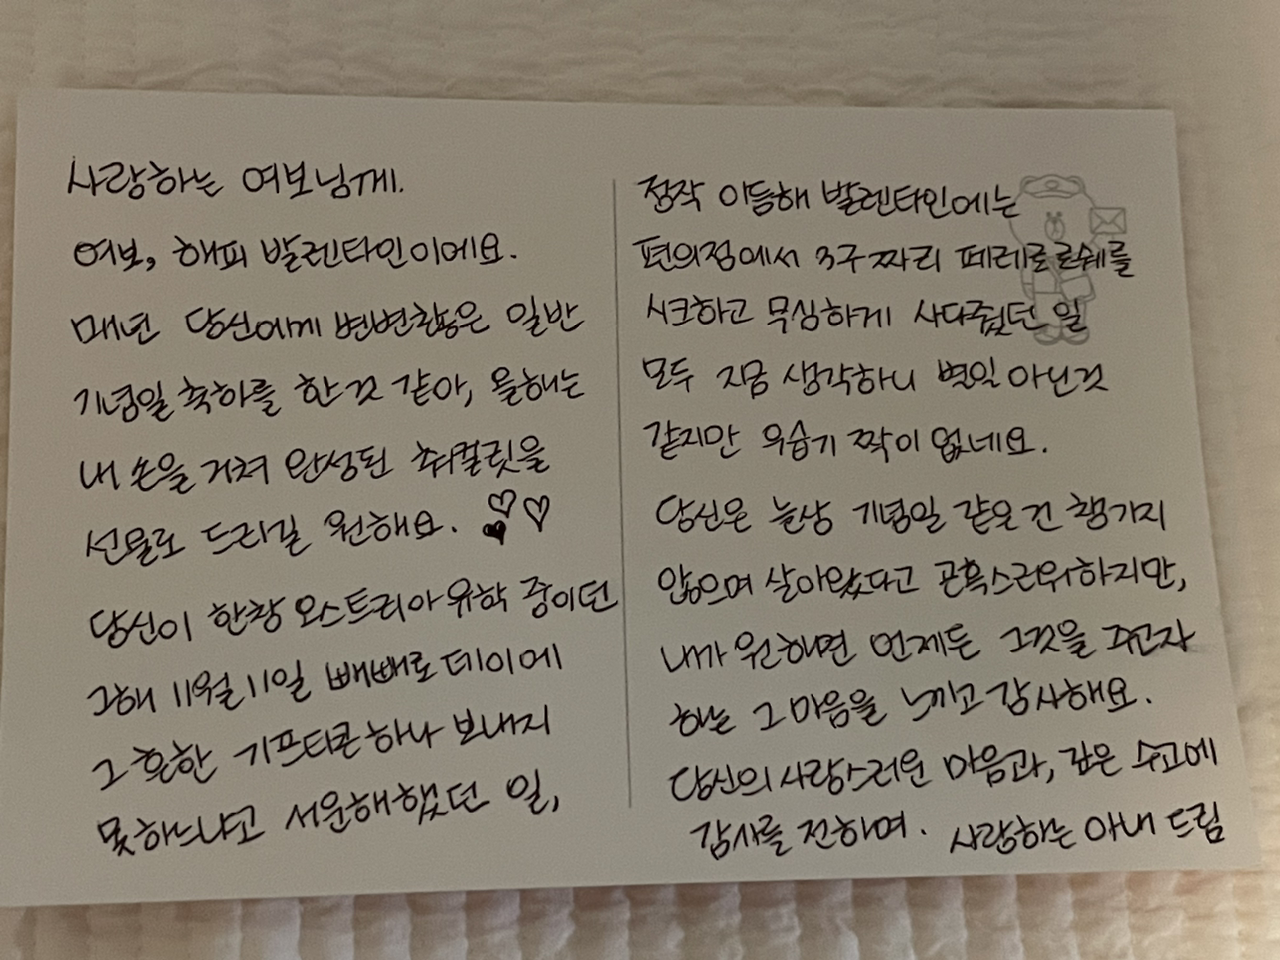 사랑하는 여보님께.
여보, 해피 발렌타인이에요.
매년 당신에게 변변찮은 일반
기념일 축하를 한 것 같아, 올해는
내 손을 거쳐 완성된 쵸컬릿을
선물로 드리길 원해요.
당신이 한창 오스트리아 유학 중이던
그해 11월 11일 빼빼로 데이에
그 흔한 기프티콘 하나 보내지
못하느냐고 서운해했던 일,
정작 이듬해 발렌타인에는
편의점에서 3구 짜리 페레로로쉐를
시크하고 무심하게 사다줬던 일
모두 지금 생각하니 별일 아닌것
같지만 우습기 짝이 없네요.
당신은 늘상 기념일 같은 건 챙기지
않으며 살아왔다고 곤혹스러워하지만,
내가 원하면 언제든 그것을 주고자
하는 그 마음을 느끼고 감사해요.
당신의 사랑스러운 마음과, 깊은 수고에
감사를 전하며. 사랑하는 아내 드림